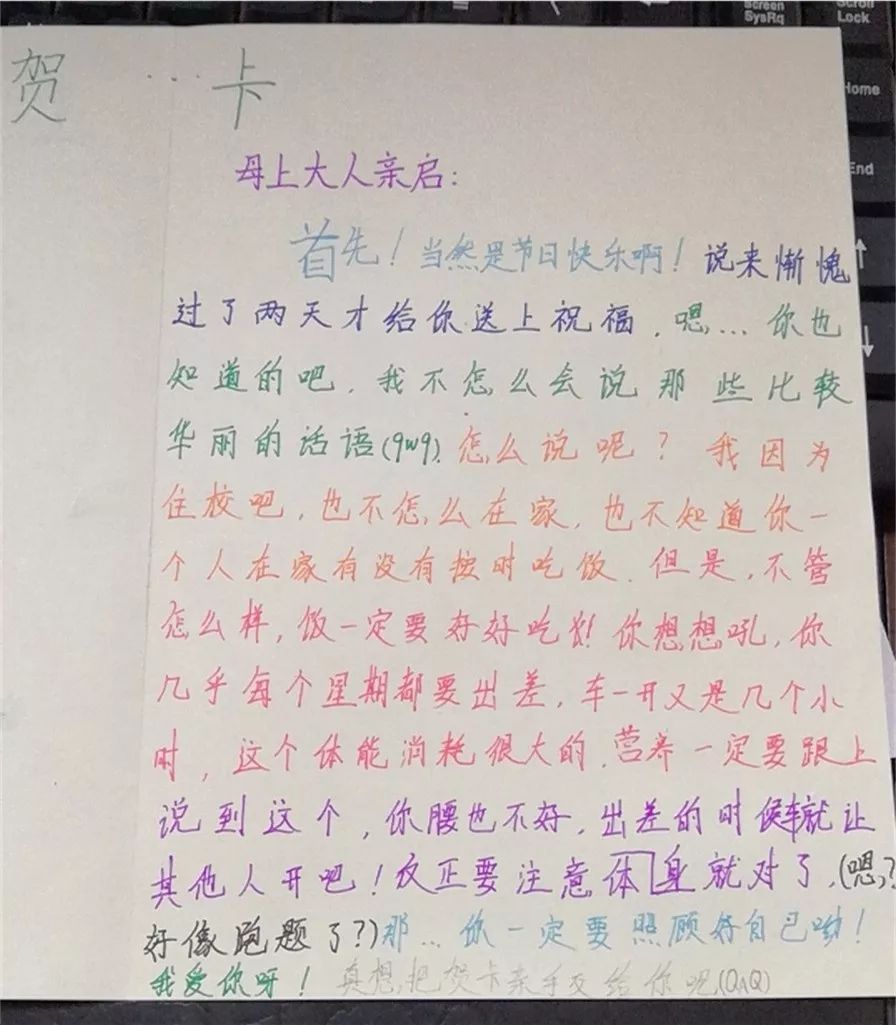 Screen
SysRq
Scroll
Lock
Home
End
贺···卡
母上大人亲启：
首先！当然是节日快乐啊！说来惭愧
过了两天才给你送上祝福，嗯…你也
知道的吧，我不怎么会说那些比较
华丽的话语(qwq)。怎么说呢？我因为
住校吧，也不怎么在家，也不知道你一
个人在家有没有按时吃饭。但是，不管
怎么样，饭一定要好好吃！你想想吼，你
几乎每个星期都要出差，车一开又是几个小
时，这个体能消耗很大的，营养一定要跟上
说到这个，你腰也不好，出差的时候车就让
其他人开吧！反正要注意体身就对了，(嗯？
好像跑题了？)那…你一定要照顾好自己呦！
我爱你呀！真想把贺卡亲手交给你呢(QAQ)